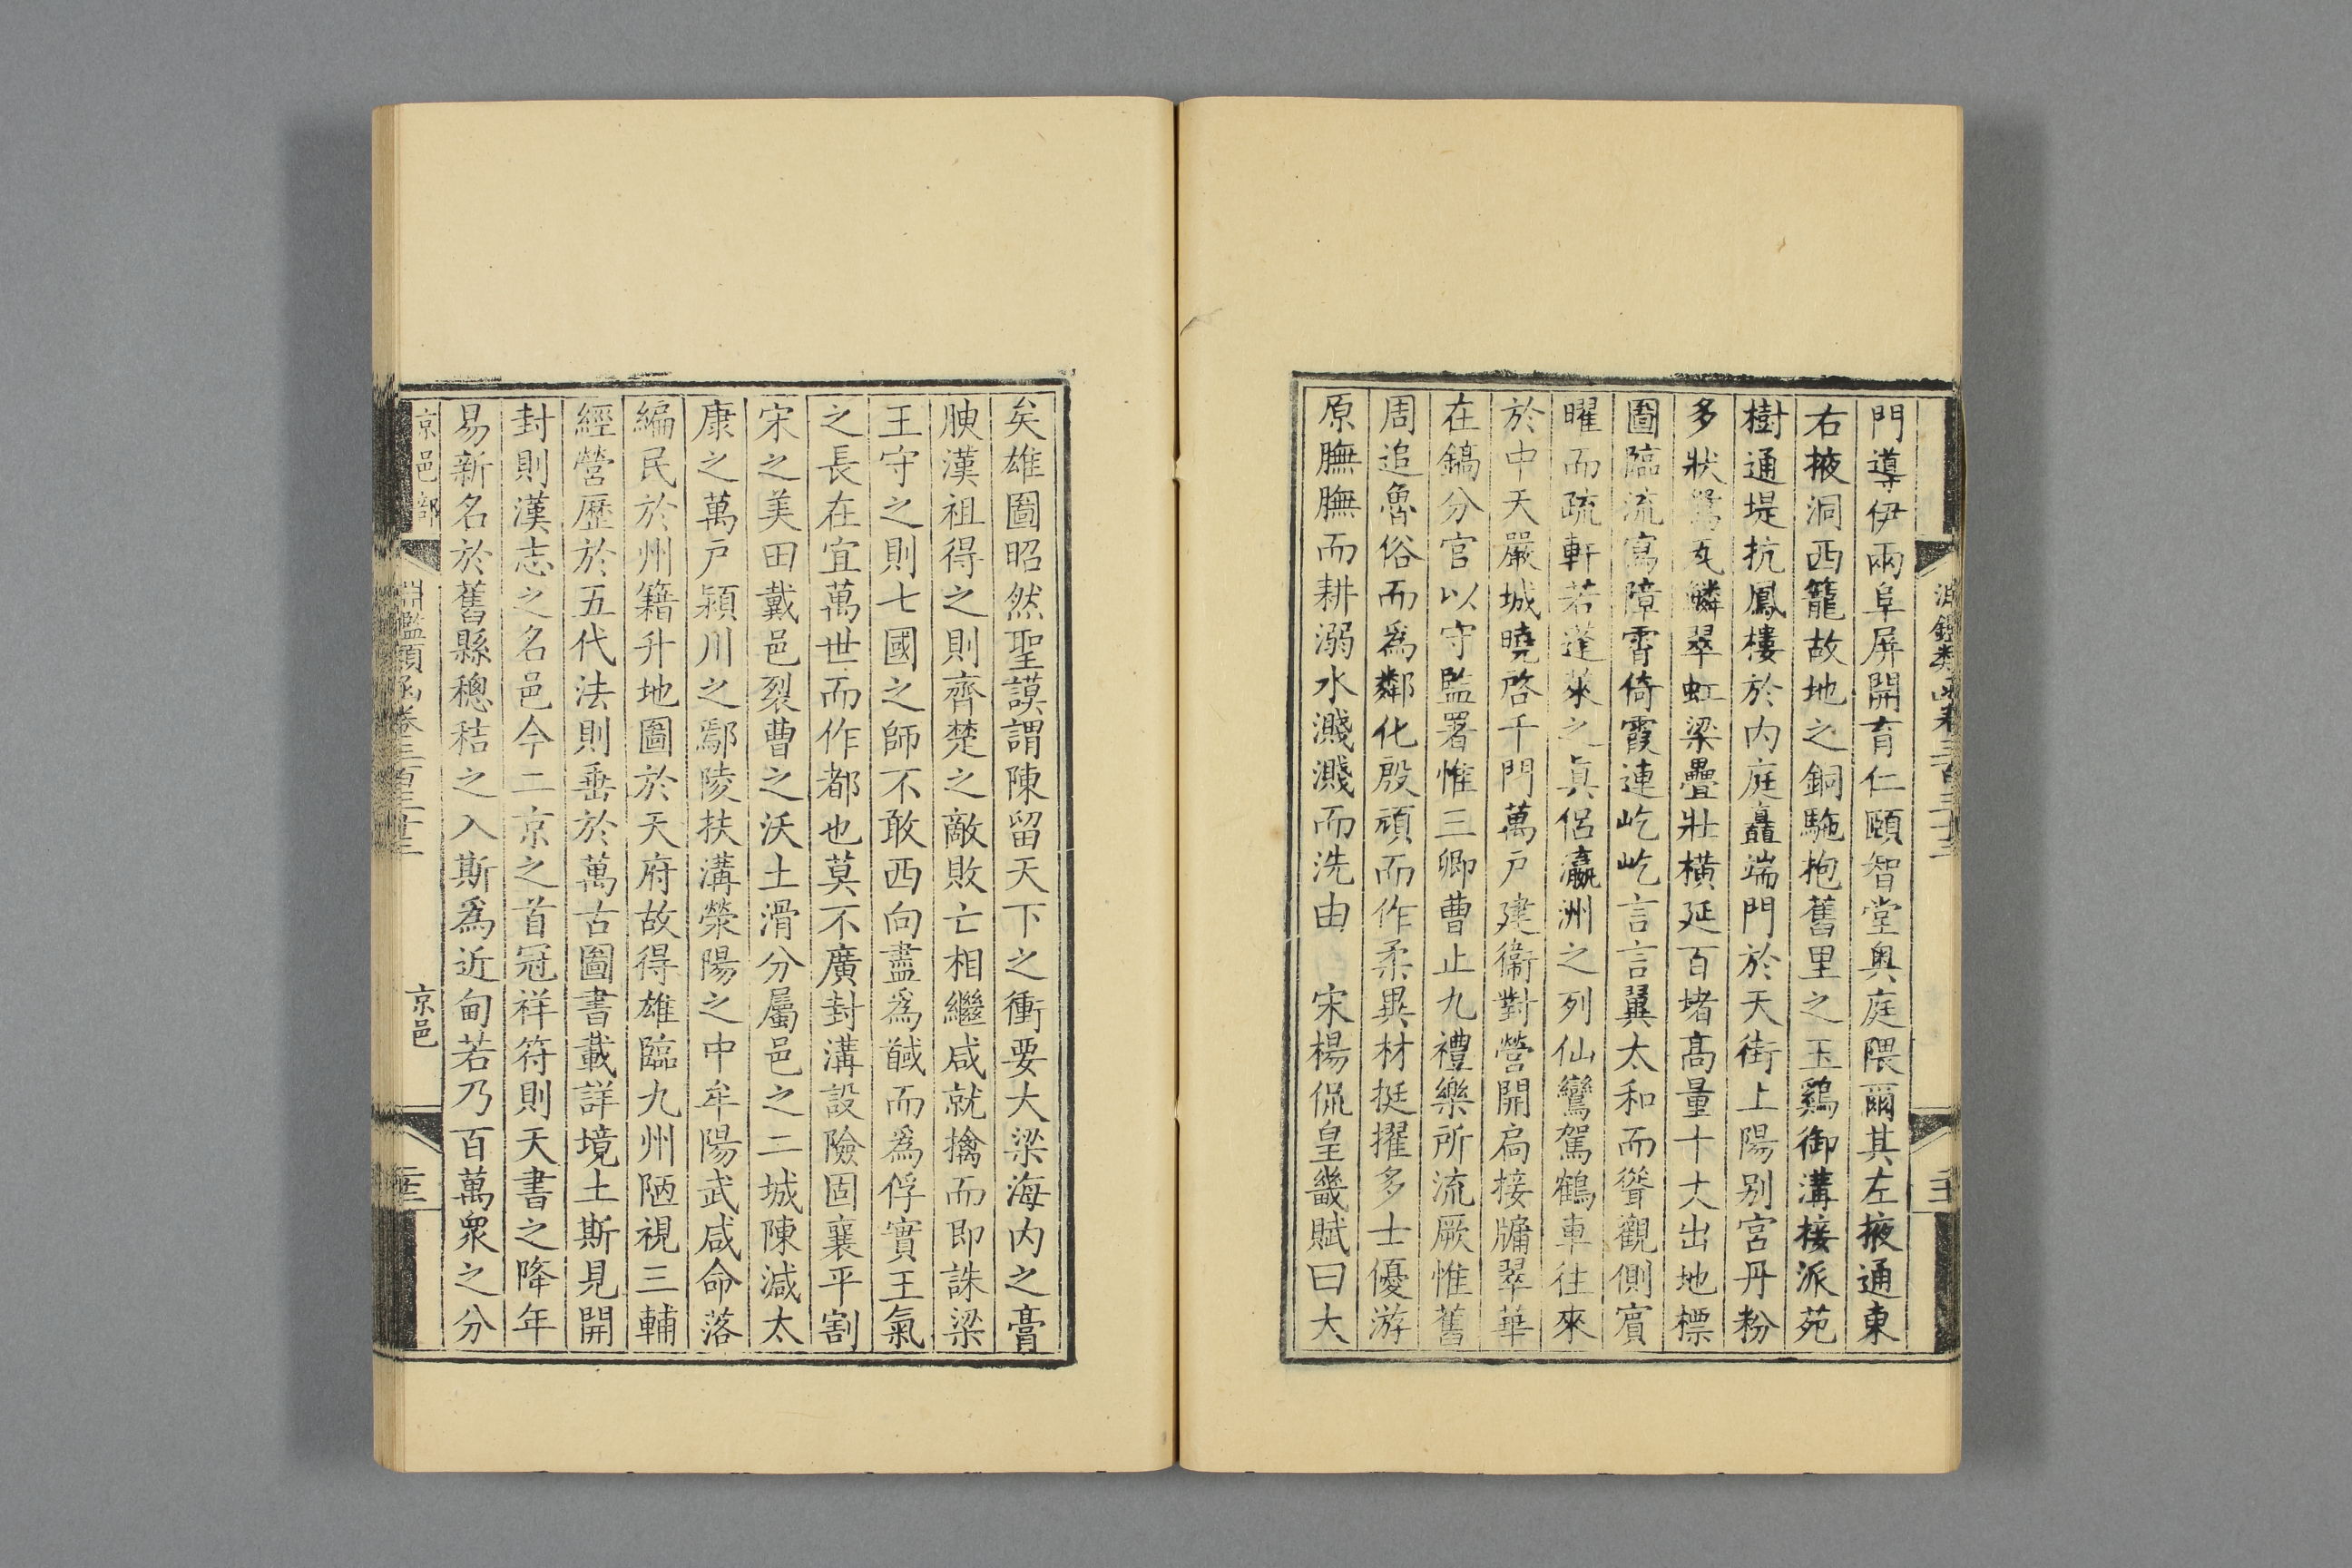 門導伊兩阜屏開育仁頤智堂奥庭隈爾其左掖通東
右掖洞西籠故地之銅駞抱舊里之玉鷄御溝接派苑
樹通堤抗鳳樓於内庭矗端門於天街上陽别宮丹粉
多狀鴛瓦鱗翠虹梁疊壯横延百堵髙量十大出地標
圖臨流寫障霄倚霞連屹屹言言翼太和而聳觀側賔
曜而疏軒若蓬萊之眞侶瀛洲之列仙鸞駕鶴車往來
於中天嚴城曉啓千門萬户建衞對營開扃接牗翠華
在鎬分官以守監署惟三卿曹止九禮樂所流厥惟舊
周追魯俗而爲鄰化殷頑而作柔異材挺擢多士優游
原膴膴而耕溺水濺濺而洗由 宋楊侃皇畿賦曰大
矣雄圖昭然聖謨謂陳留天下之衝要大梁海内之膏
腴漢祖得之則齊楚之敵敗亡相繼咸就擒而即誅梁
王守之則七國之師不敢西向盡爲馘而爲俘實王氣
之長在宜萬世而作都也莫不廣封溝設險固襄平割
宋之美田戴邑裂曹之沃土滑分屬邑之二城陳減太
康之萬户潁川之鄢陵扶溝滎陽之中牟陽武咸命落
編民於州籍升地圖於天府故得雄臨九州陋視三輔
經營歷於五代法則垂於萬古圖書載詳境土斯見開
封則漢志之名邑今二京之首冠祥符則天書之降年
易新名於舊縣總秸之入斯爲近甸若乃百萬衆之分
京邑部
淵鑑類函卷三百三十三
京邑